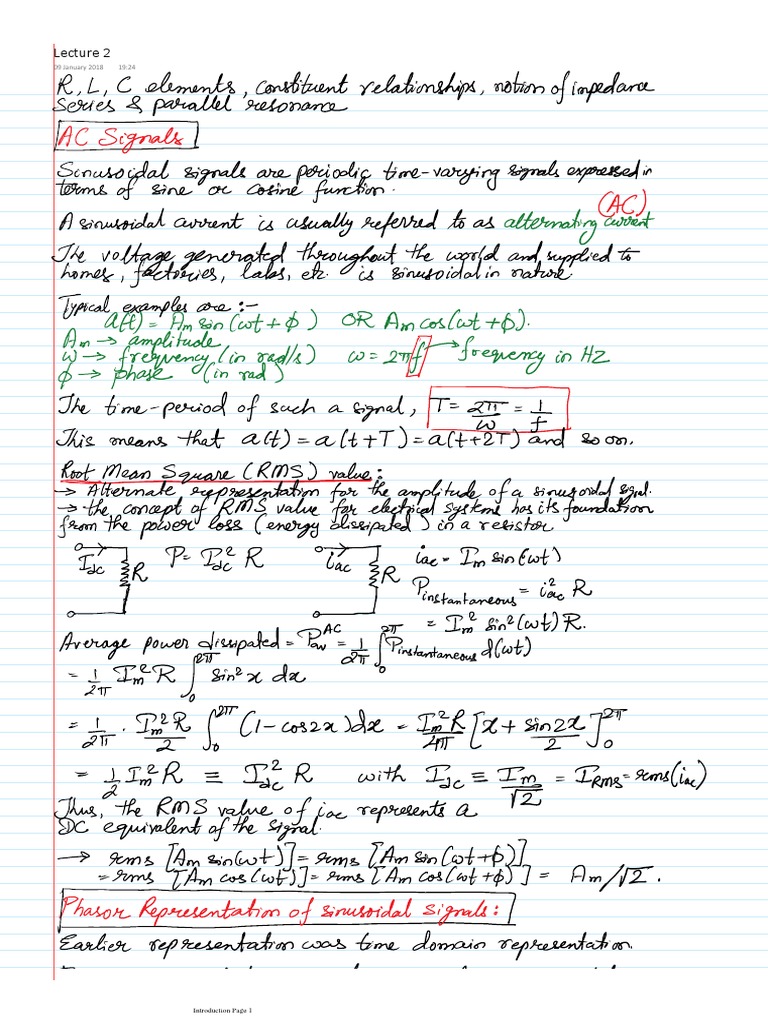 Lecture 2
09 January 2018 19:24
R, L, C elements, constituent relationships, notion of impedance
Series & parallel resonance
AC Signals
Sinusoidal signals are periodic time-varying signals expressed in
terms of sine or cosine function.
(AC)
A sinusoidal current is usually referred to as alternating current
The voltage generated throughout the world and supplied to
homes, factories, labs, etc. is sinusoidal in nature.
Typical examples are :-
a(t) = Am sin(ωt + φ) OR Am cos(ωt + φ).
Am → amplitude
ω → frequency (in rad/s) ω = 2πf → frequency in HZ
φ → phase (in rad)
The time-period of such a signal, T = 2π/ω = 1/f
This means that a(t) = a(t+T) = a(t+2T) and so on.
Root Mean Square (RMS) value :
→ Alternate representation for the amplitude of a sinusoidal signal.
→ the concept of RMS value for electrical systems has its foundation
from the power loss (energy dissipated) in a resistor
Idc R P = Idc² R iac R iac = Im sin(ωt)
Pinstantaneous = iac² R
= Im² sin²(ωt) R.
Average power dissipated = Pav^AC = 1/2π ∫₀^2π Pinstantaneous d(ωt)
= 1/2π Im² R ∫₀^2π sin² x dx
= 1/2π . Im² R/2 ∫₀^2π (1 - cos2x) dx = Im² R/4π [x + sin2x/2]₀^2π
= 1/2 Im² R ≡ Idc² R with Idc ≡ Im/√2 = IRMS = rms(iac)
Thus, the RMS value of iac represents a
DC equivalent of the signal.
→ rms [Am sin(ωt)] = rms [Am sin(ωt+φ)]
= rms [Am cos(ωt)] = rms [Am cos(ωt+φ)] = Am/√2.
Phasor Representation of sinusoidal signals :
Earlier representation was time domain representation.
Introduction Page 1